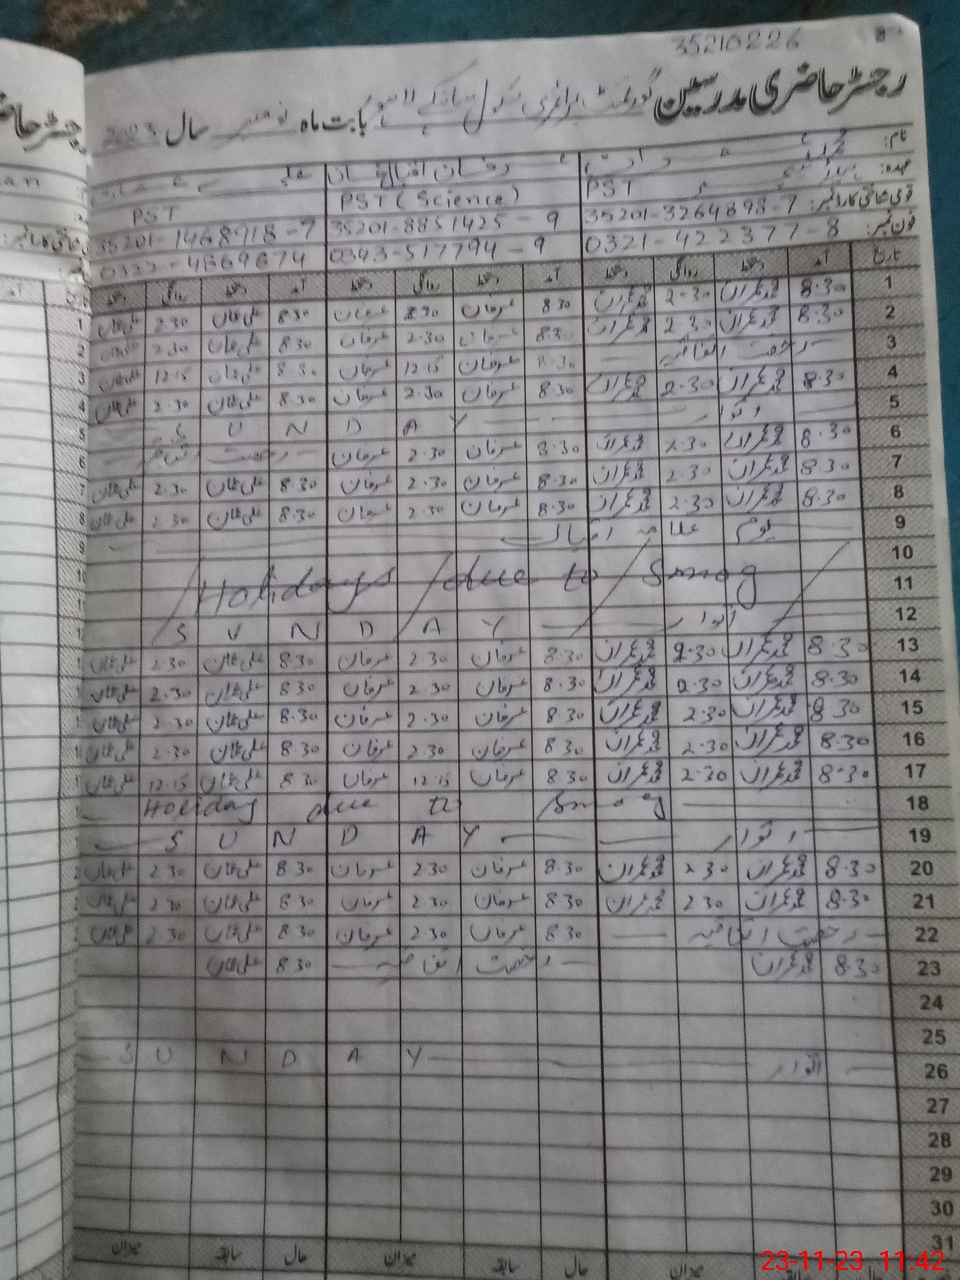 35210226
رجسٹر حاضری مدرسین گورنمنٹ پرائمری سکول بابت ماہ نومبر سال 2023
نام:
عہدہ: PST PST (Science) PST
قومی شناختی کارڈ نمبر: 35201-3264898-7 35201-8851425-9 35201-1468918-7
فون نمبر: 0321-422377-8 0343-517794-9 4369674
تاریخ آمد دستخط روانگی دستخط آمد دستخط روانگی دستخط آمد دستخط روانگی دستخط
1 8.30 محمد عمران 2.30 محمد عمران 8.30 عرفان 8.30 عرفان 8.30 علی عثمان 2.30 علی عثمان
2 8.30 محمد عمران 2.30 محمد عمران 8.30 عرفان 2.30 عرفان 8.30 علی عثمان 2.30 علی عثمان
3 رخصت اتفاقیہ 8.30 عرفان 12.15 عرفان 8.30 علی عثمان 12.15 علی عثمان
4 8.30 محمد عمران 2.30 محمد عمران 8.30 عرفان 2.30 عرفان 8.30 علی عثمان 2.30 علی عثمان
5 اتوار S U N D A Y
6 8.30 محمد عمران 2.30 محمد عمران 8.30 عرفان 2.30 عرفان رخصت اتفاقیہ
7 8.30 محمد عمران 2.30 محمد عمران 8.30 عرفان 2.30 عرفان 8.30 علی عثمان 2.30 علی عثمان
8 8.30 محمد عمران 2.30 محمد عمران 8.30 عرفان 2.30 عرفان 8.30 علی عثمان 2.30 علی عثمان
9 یوم علامہ اقبال
10
11 Holidays due to Smog
12 اتوار S U N D A Y
13 8.30 محمد عمران 2.30 محمد عمران 8.30 عرفان 2.30 عرفان 8.30 علی عثمان 2.30 علی عثمان
14 8.30 محمد عمران 2.30 محمد عمران 8.30 عرفان 2.30 عرفان 8.30 علی عثمان 2.30 علی عثمان
15 8.30 محمد عمران 2.30 محمد عمران 8.30 عرفان 2.30 عرفان 8.30 علی عثمان 2.30 علی عثمان
16 8.30 محمد عمران 2.30 محمد عمران 8.30 عرفان 2.30 عرفان 8.30 علی عثمان 2.30 علی عثمان
17 8.30 محمد عمران 2.30 محمد عمران 8.30 عرفان 12.15 عرفان 8.30 علی عثمان 12.15 علی عثمان
18 Holiday due to Smog
19 اتوار S U N D A Y
20 8.30 محمد عمران 2.30 محمد عمران 8.30 عرفان 2.30 عرفان 8.30 علی عثمان 2.30 علی عثمان
21 8.30 محمد عمران 2.30 محمد عمران 8.30 عرفان 2.30 عرفان 8.30 علی عثمان 2.30 علی عثمان
22 رخصت اتفاقیہ 8.30 عرفان 2.30 عرفان 8.30 علی عثمان 2.30 علی عثمان
23 8.30 محمد عمران رخصت اتفاقیہ 8.30 علی عثمان
24
25
26 اتوار S U N D A Y
27
28
29
30
31
حال سابقہ میزان حال سابقہ میزان حال سابقہ میزان
23-11-23 11:42